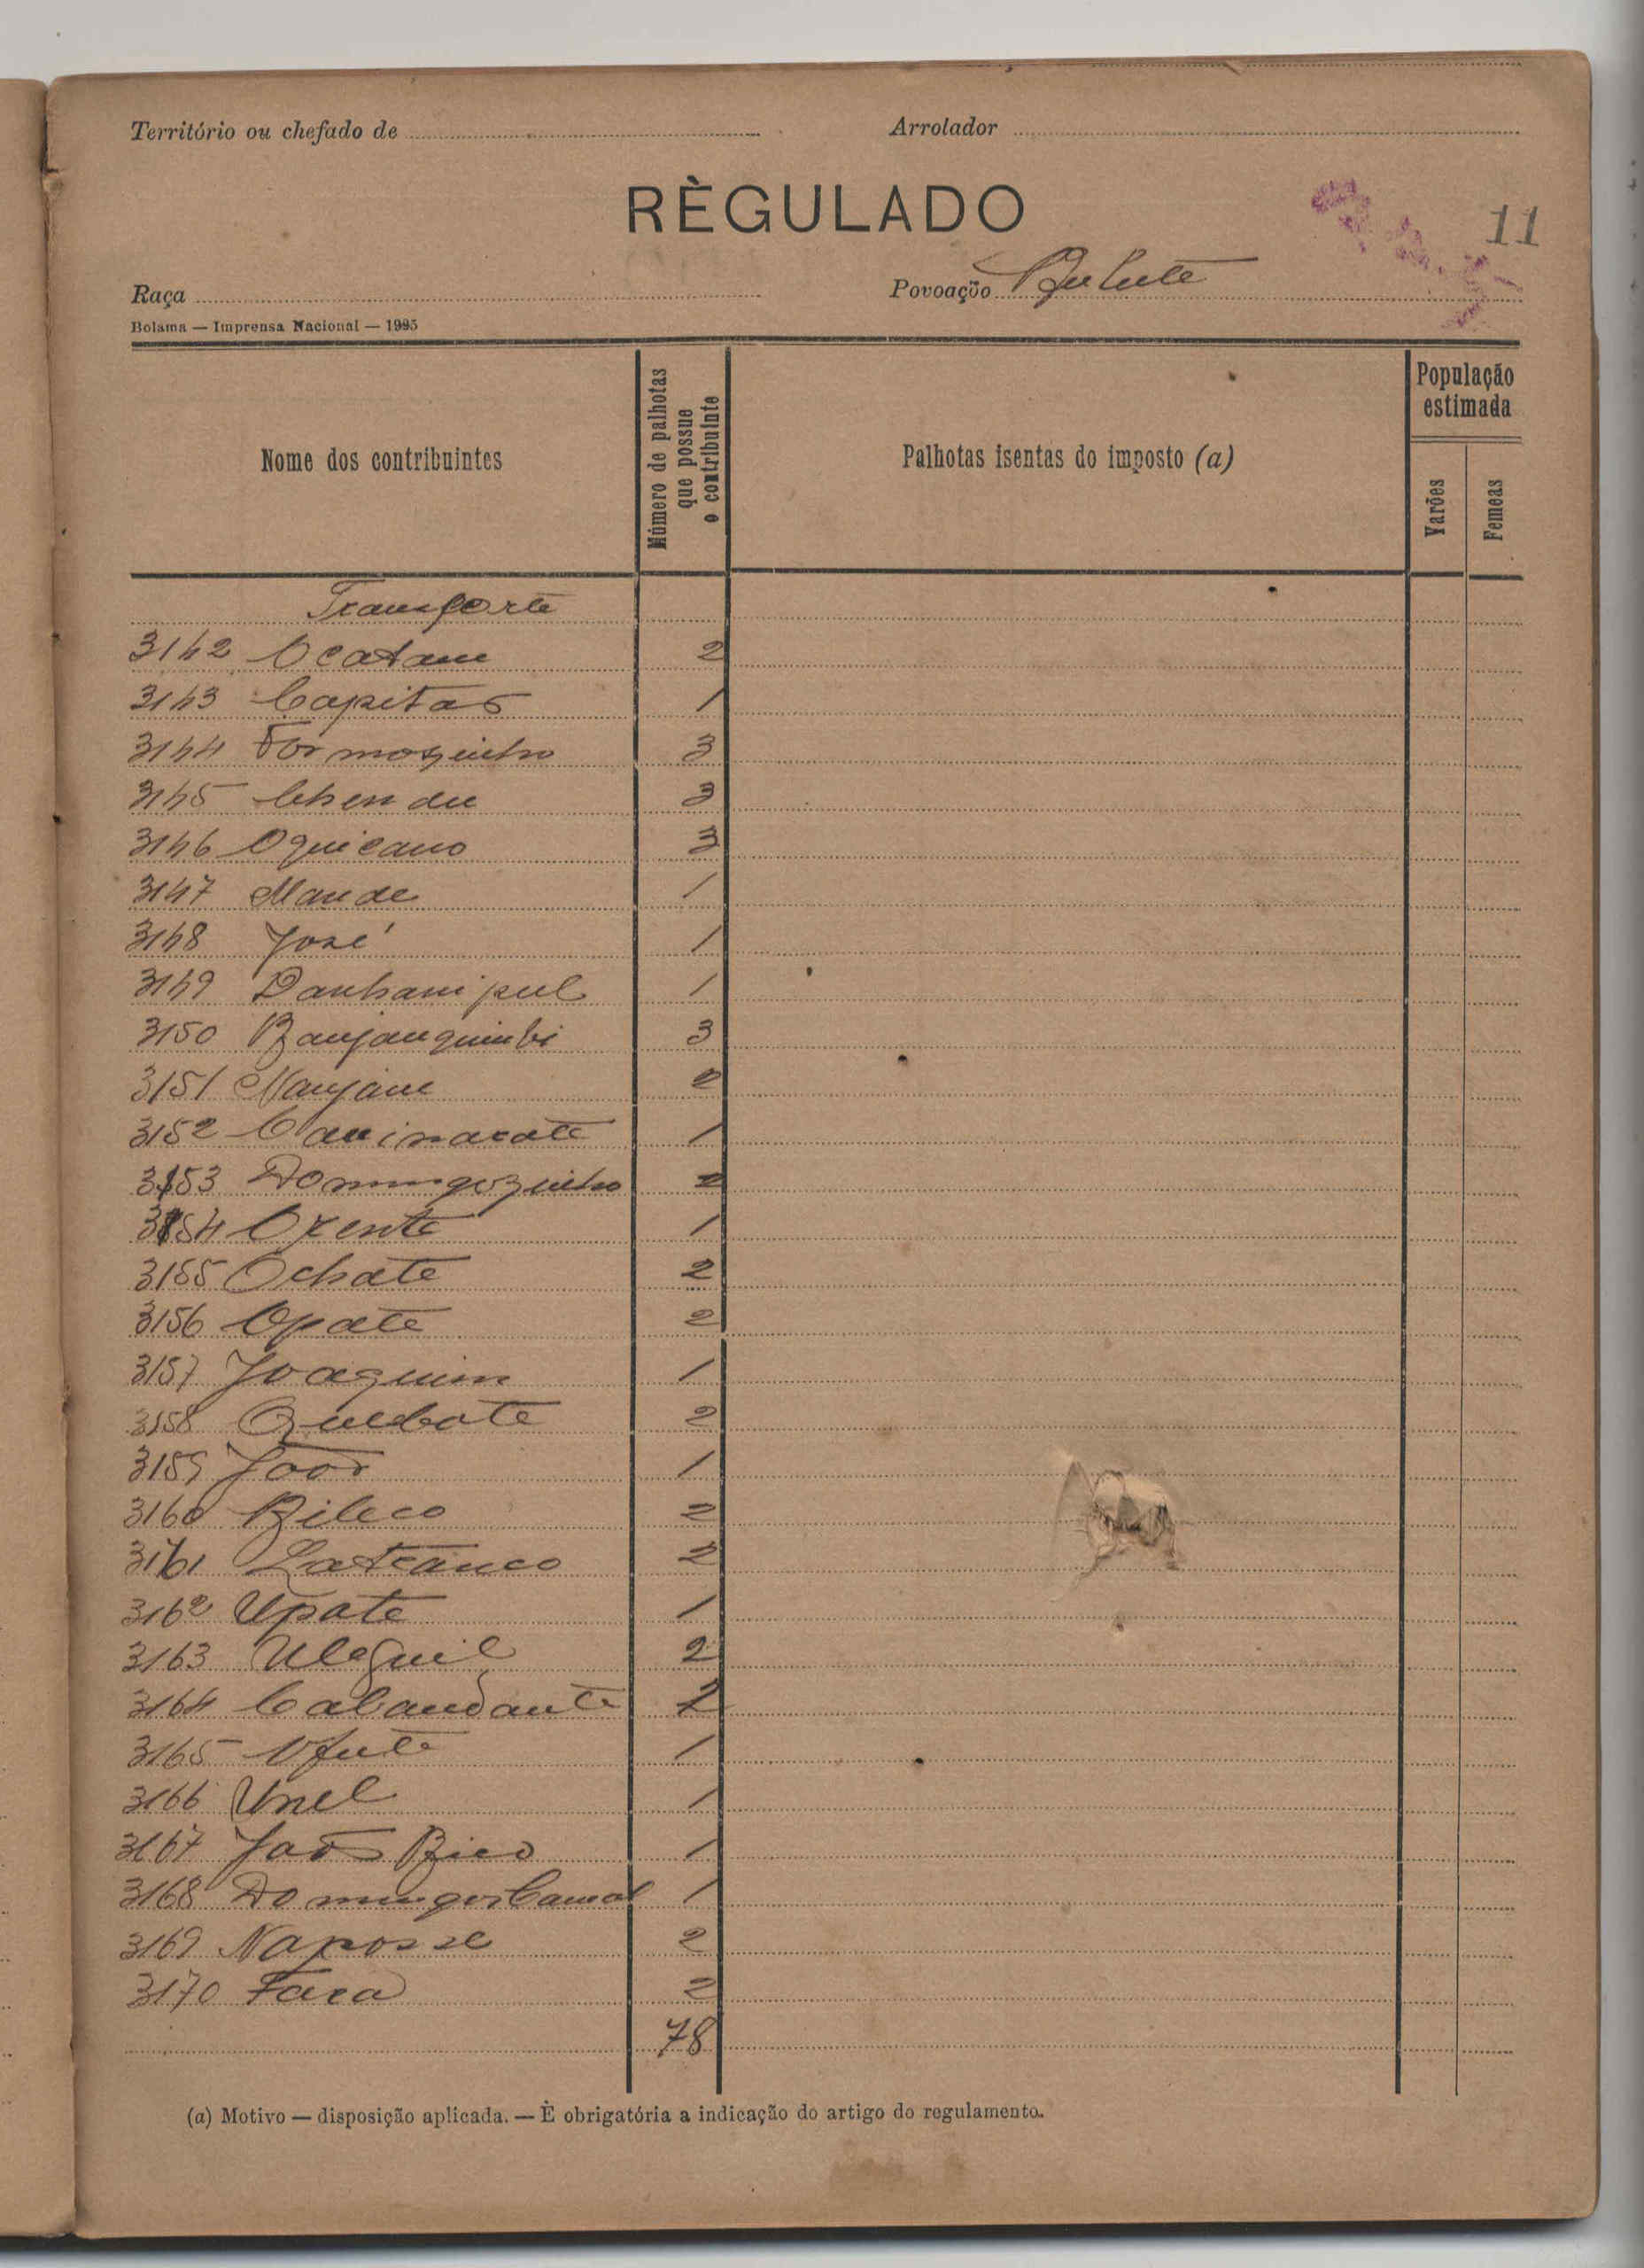 Território ou chefado de
Arrolador
RÈGULADO
11
Raça
Povoação
Bolama — Imprensa Nacional — 1925
Nome dos contribuintes
Número de palhotas que possue o contribuinte
Palhotas isentas do imposto (a)
População estimada
Varões
Femeas
Transporte
3142 Ocatam 2
3143 Capitas 1
3144 Formozinho 3
3145 Chendu 3
3146 Oquicano 3
3147 Mande 1
3148 José 1
3149 1
3150 Banjanquimbi 3
3151 Nanjam 2
3152 1
3153 Domingozinho 2
3154 Orente 1
3155 Ochate 2
3156 Opate 2
3157 Joaquim 1
3158 Quebate 2
3159 João 1
3160 Bileco 2
3161 2
3162 Upate 1
3163 Uleguil 2
3164 Cabandante
3165 1
3166 Unel 1
3167 João Bico 1
3168 Domingos 1
3169 Naposse 2
3170 Fara 2
78
(a) Motivo — disposição aplicada. — È obrigatória a indicação do artigo do regulamento.